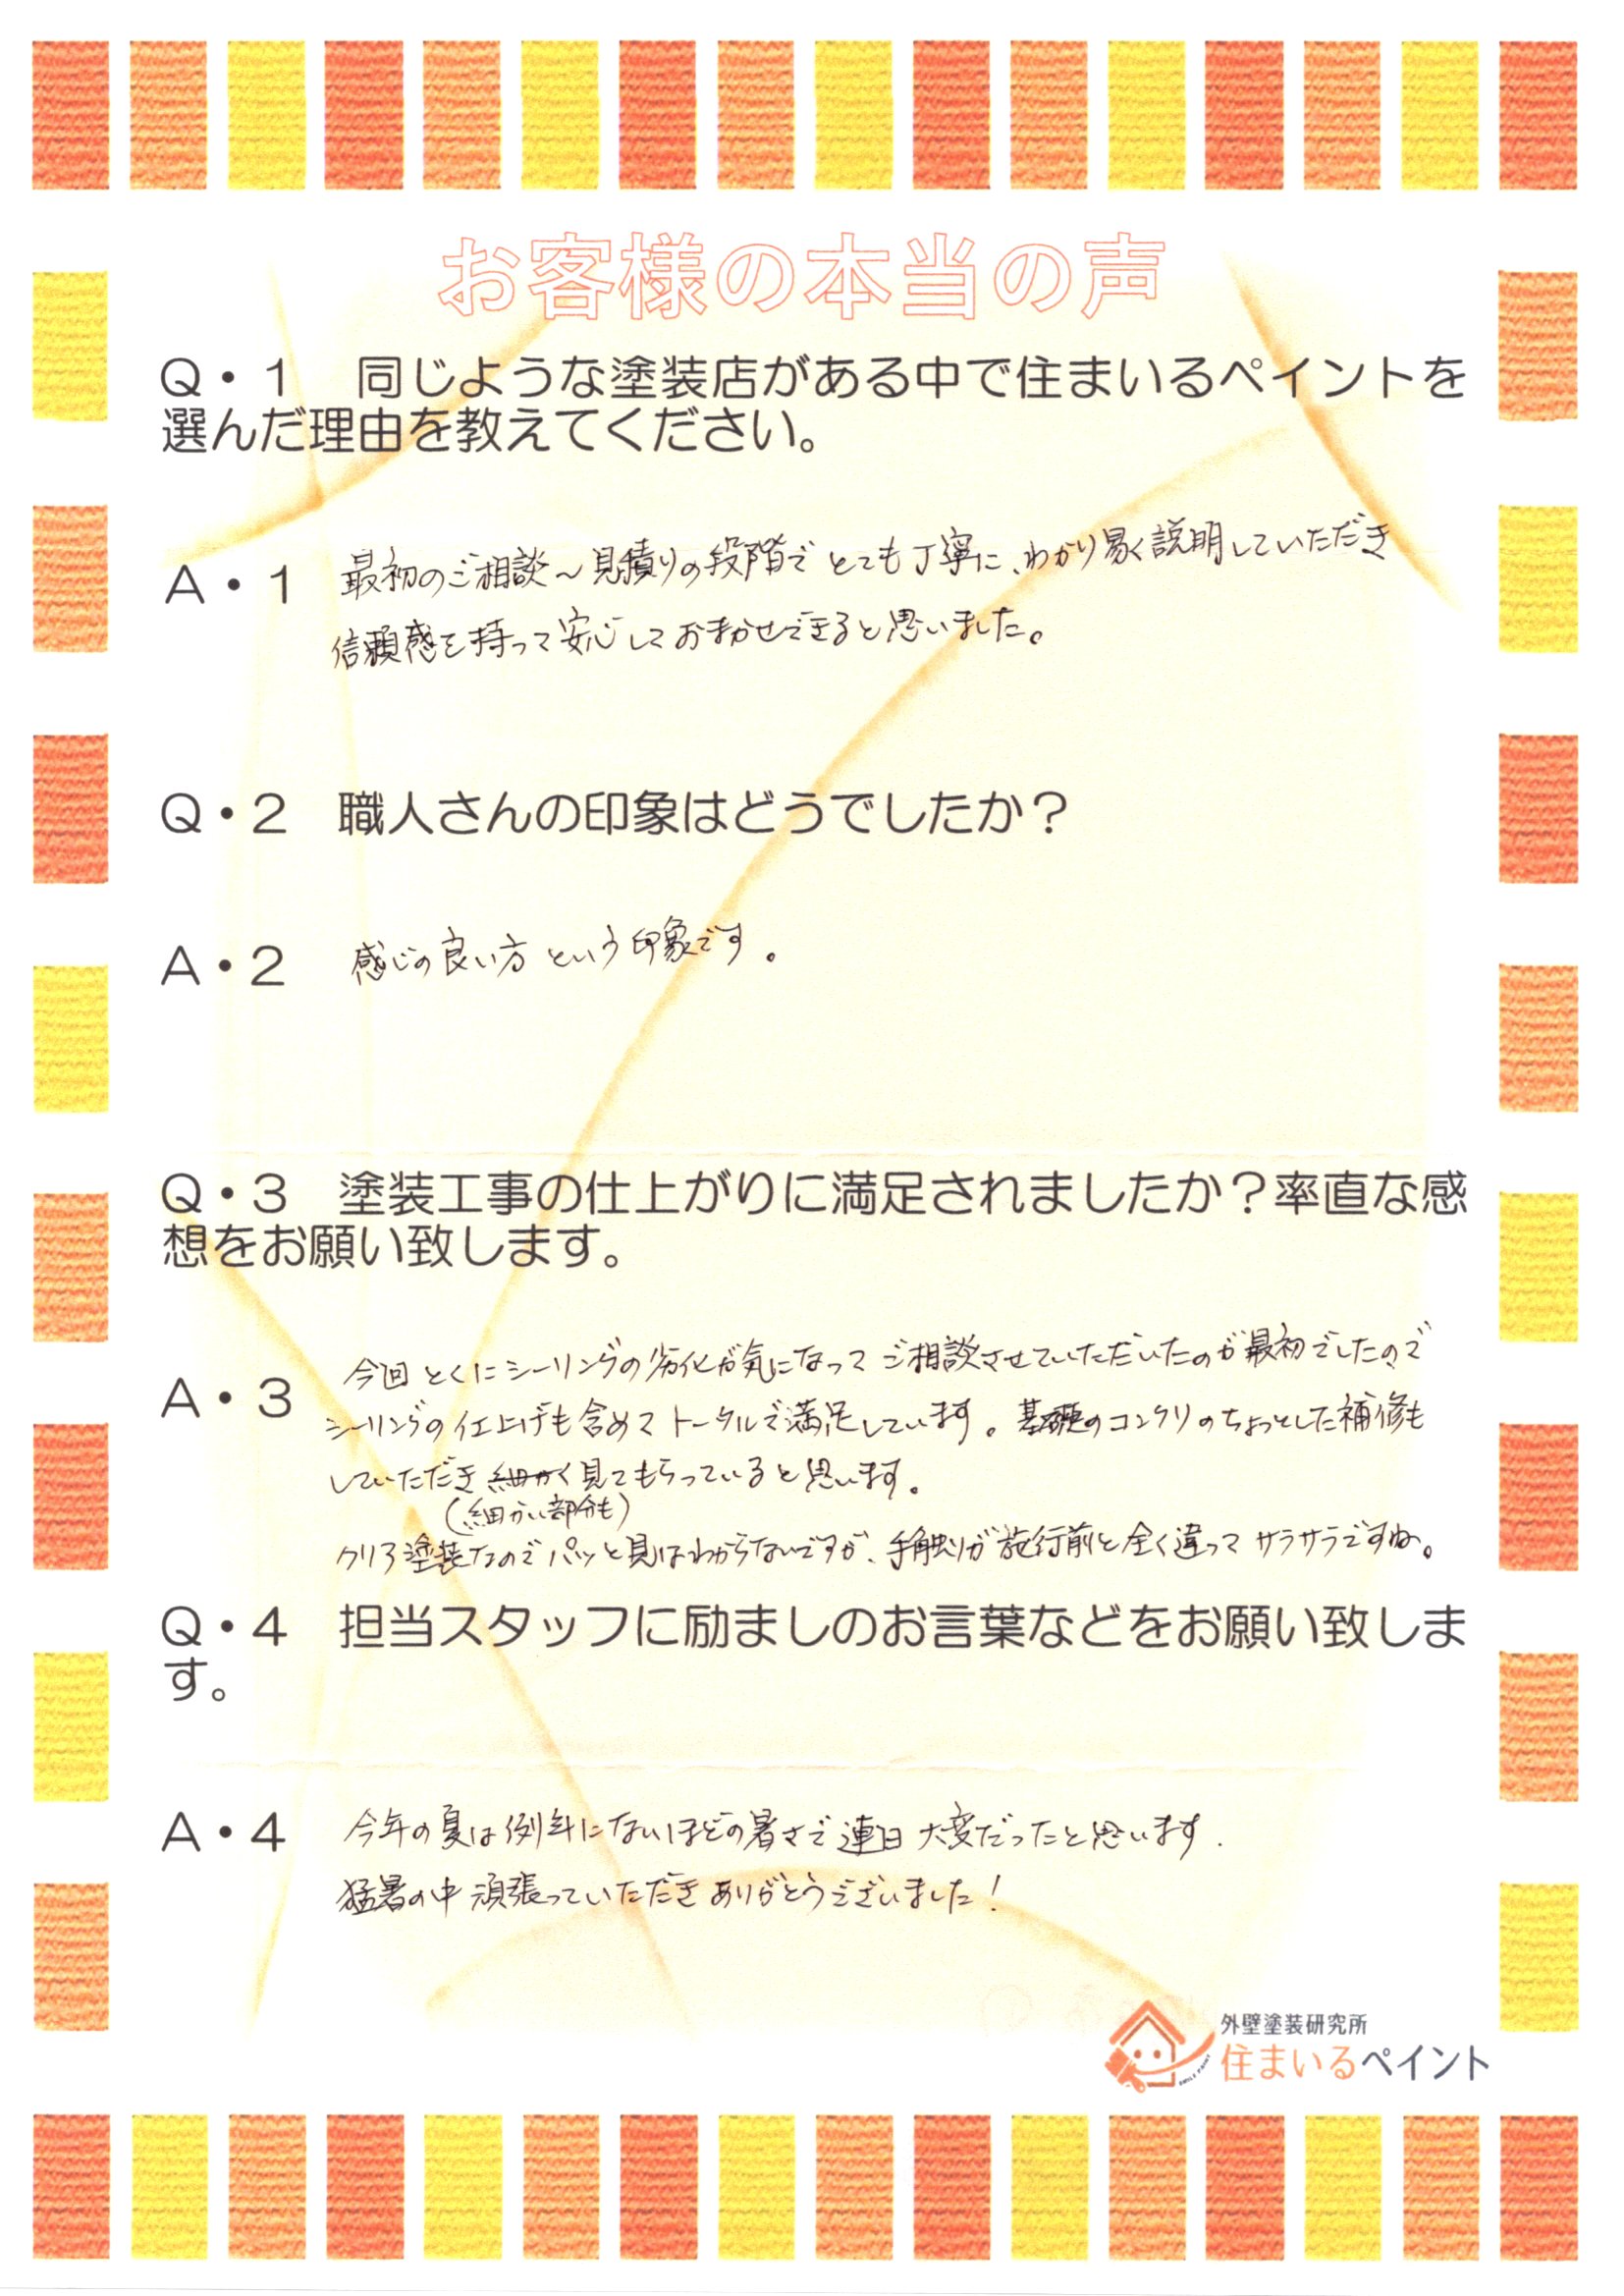 お客様の本当の声
Q・1　同じような塗装店がある中で住まいるペイントを
選んだ理由を教えてください。
A・1　最初のご相談～見積りの段階で とても丁寧に、わかり易く説明していただき
信頼感を持って安心しておまかせできると思いました。
Q・2　職人さんの印象はどうでしたか？
A・2　感じの良い方 という印象です。
Q・3　塗装工事の仕上がりに満足されましたか？率直な感
想をお願い致します。
A・3　今回 とくにシーリングの劣化が気になって ご相談させていただいたのが最初でしたので
シーリングの仕上げも含めて トータルで満足しています。基礎のコンクリのちょっとした補修も
していただき 細かく見てもらっていると思います。
(細かい部分も)
クリア塗装なのでパッと見はわからないですが、手触りが施行前と全く違って サラサラですね。
Q・4　担当スタッフに励ましのお言葉などをお願い致しま
す。
A・4　今年の夏は例年にないほどの暑さで連日 大変だったと思います.
猛暑の中 頑張っていただき ありがとうございました！
外壁塗装研究所
住まいるペイント